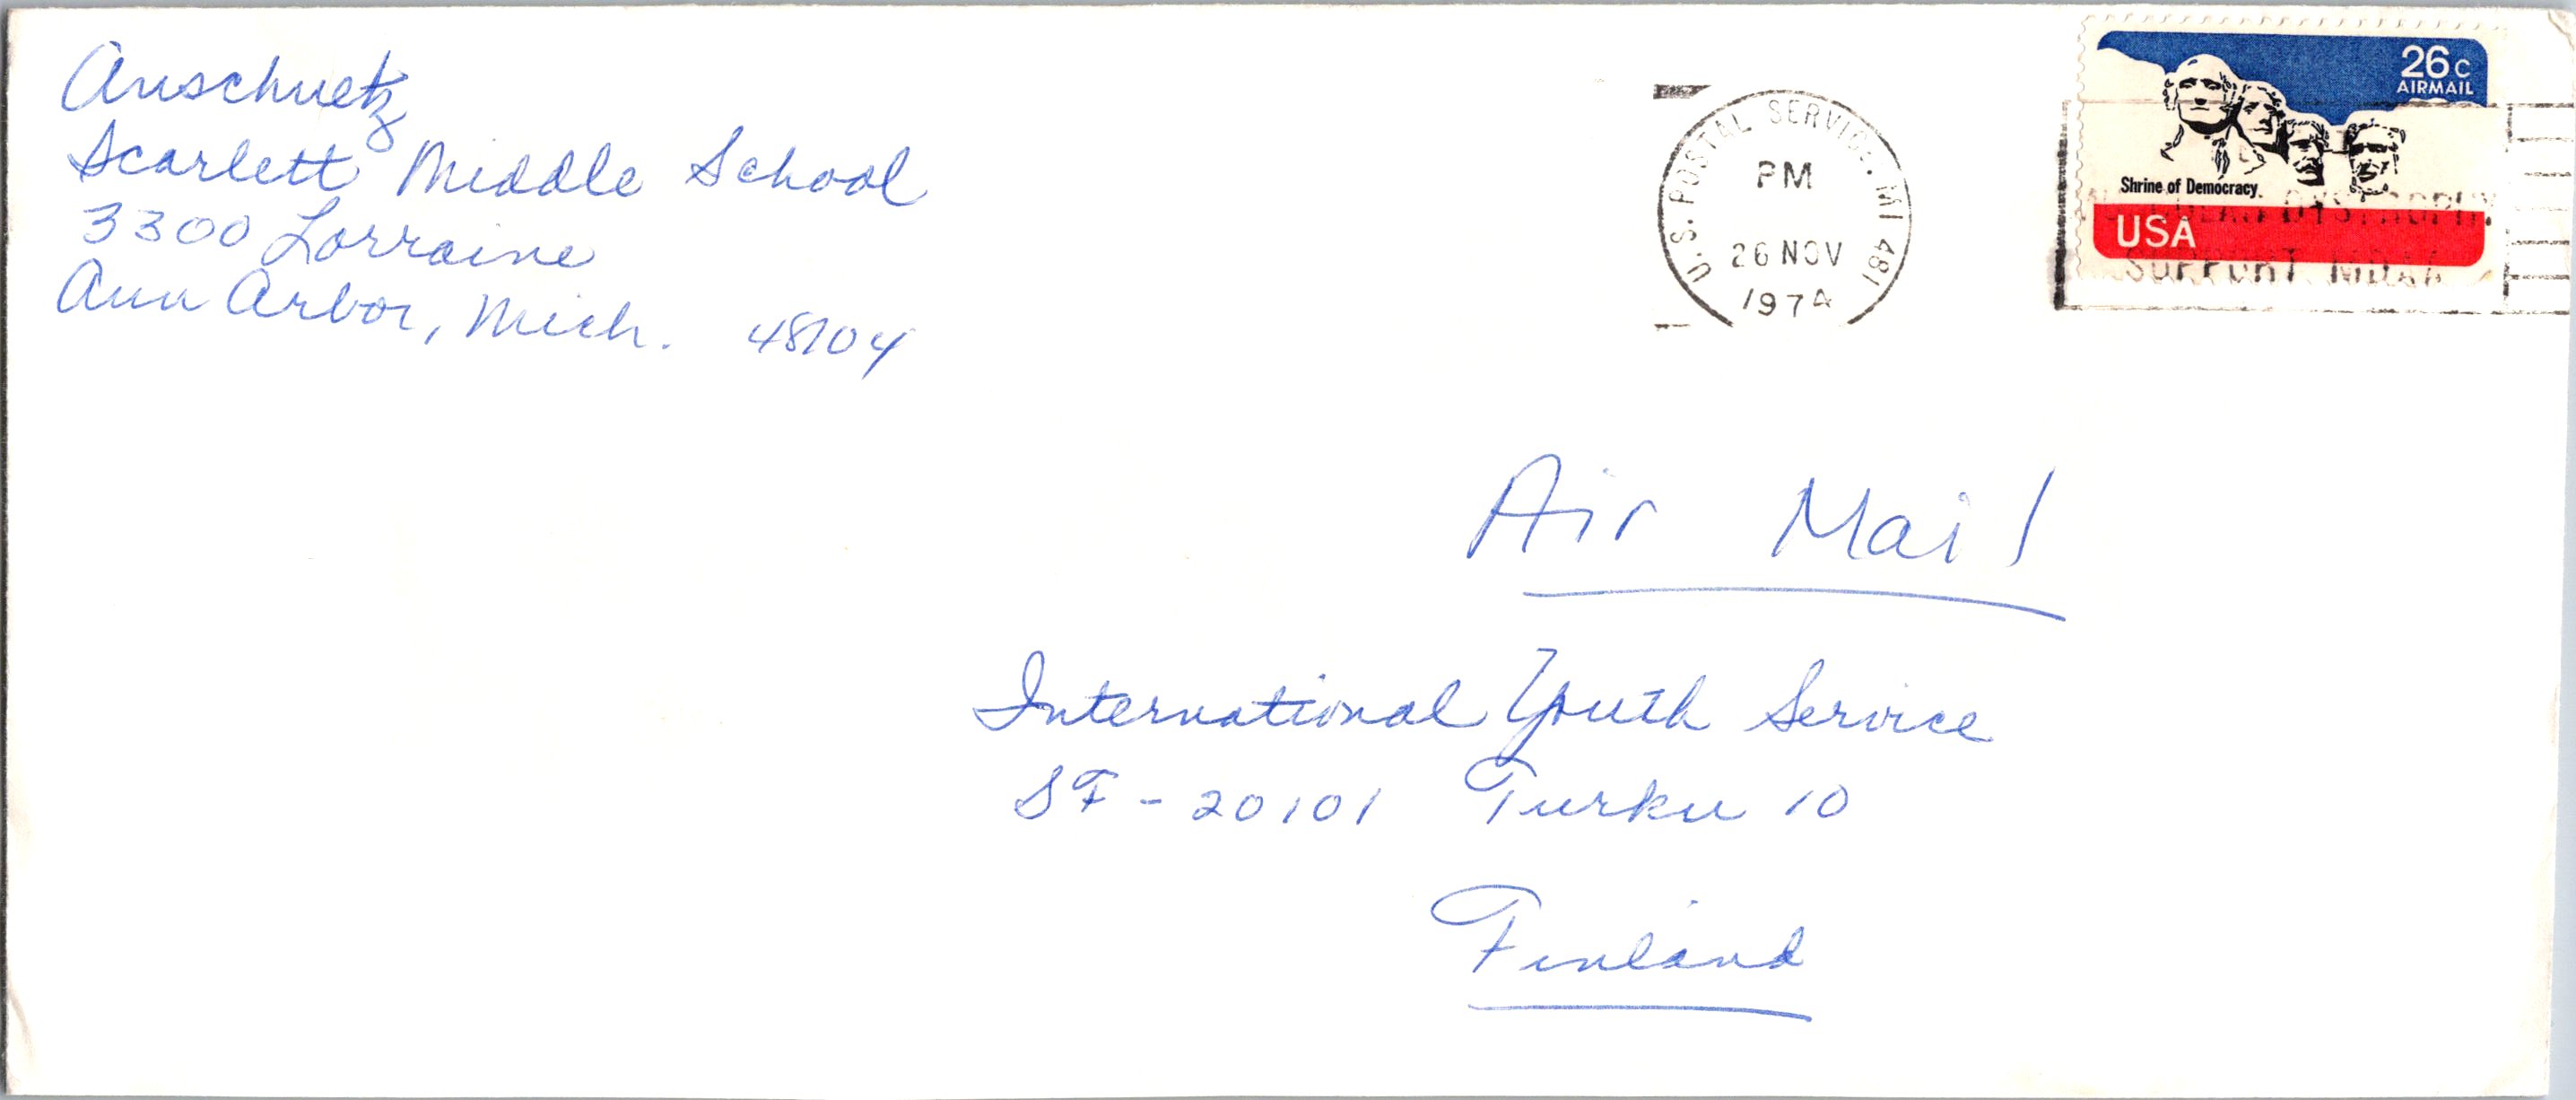 Anschuetz
Scarlett Middle School
3300 Lorraine
Ann Arbor, Mich. 48104
U.S. POSTAL SERVICE. MI 481
PM
26 NOV
1974
26c
AIRMAIL
Shrine of Democracy
USA
DYSTROPHY
SUPPORT MDAA
Air Mail
International Youth Service
SF - 20101 Turku 10
Finland